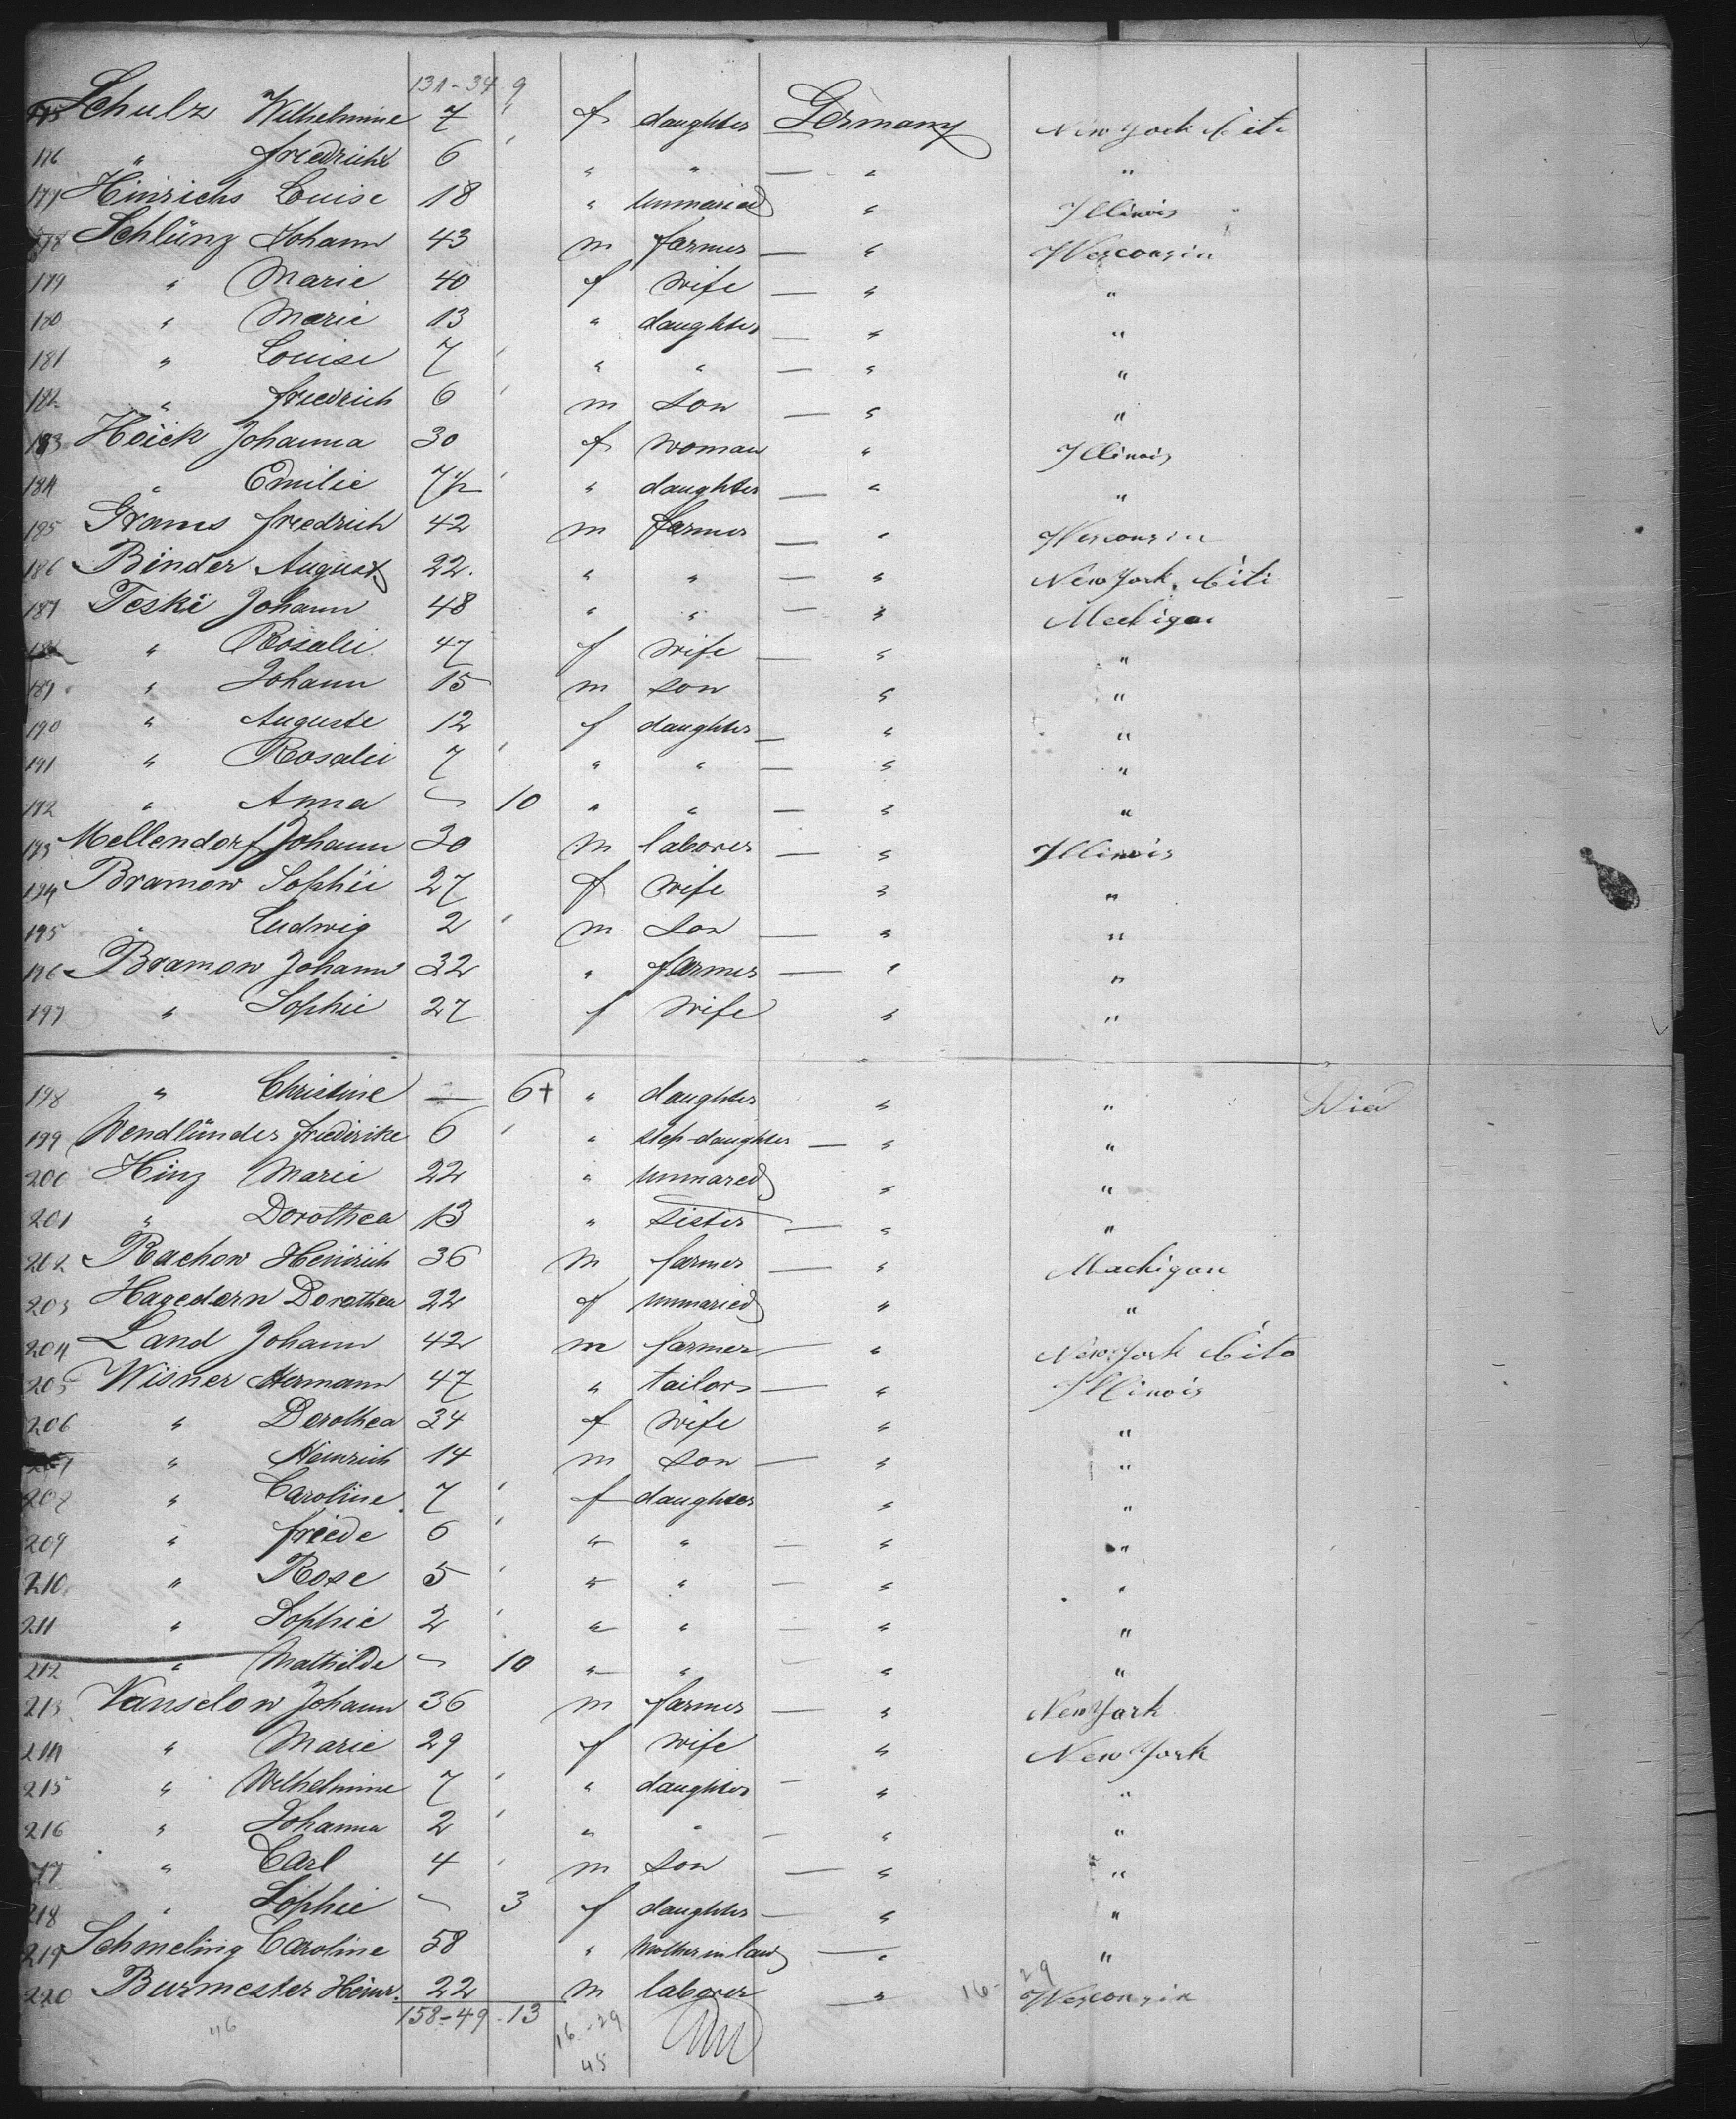 131-34 9
175 Schulz Wilhelmine 7 ' f daughter Germany New York Citi
176 " Friedrich 6 ' " " — " "
177 Hinrichs Louise 18 " unmaried " Illinois
178 Schlünz Johann 43 m farmer — " Wesconsin
179 " Marie 40 f wife — " "
180 " Marie 13 " daughter — " "
181 " Louise 7 ' " " — " "
182 " Friedrich 6 ' m son — " "
183 Höick Johanna 30 f woman " Illinois
184 " Emilie 7½ ' " daughter — " "
185 Grams Friedrich 42 m farmer — " Wesconsin
186 Binder August 22. " " — " New York Citi
187 Teske Johann 48 " " — " Mechigan
188 " Rosalie 47 f wife — " "
189 " Johann 15 m son " "
190 " Auguste 12 f daughter — " "
191 " Rosalie 7 ' " " — " "
192 " Anna 10 " " — " "
193 Mellendorf Johann 30 m laborer — " Illinois
194 Bramow Sophie 27 f wife " "
195 " Ludwig 2 ' m son — " "
196 Bramow Johann 32 " farmer — " "
197 " Sophie 27 f wife " "
198 " Christine — 6+ " daughter " " Died
199 Wendlünder Friederike 6 ' " step-daughter — " "
200 Hinz Marie 22 " unmared " "
201 " Dorothea 13 " sister — " "
202 Rachow Heinrich 36 m farmer — " Machigan
203 Hagedorn Dorothea 22 f unmaried " "
204 Land Johann 42 m farmer — " New York Cito
205 Wisner Hermann 47 " tailor — " Illinois
206 " Dorothea 34 f wife " "
207 " Heinrich 14 m son — " "
208 " Caroline 7 ' f daughter " "
209 " Friede 6 ' " " — " "
210 " Rose 5 ' " " — " "
211 " Sophie 2 ' " " — " "
212 " Mathilde 10 " " — " "
213 Vanselow Johann 36 m farmer — " New York
214 " Marie 29 f wife " New York
215 " Wilhelmine 7 ' " daughter — " "
216 " Johanna 2 ' " " — " "
217 " Carl 4 ' m son — " "
218 " Sophie 3 f daughter — " "
219 Schmeling Caroline 58 " mother in law — " "
220 Burmester Heinr. 22 m laborer — " 16- 29 Wesconsin
158-49-13 16-29
46 45